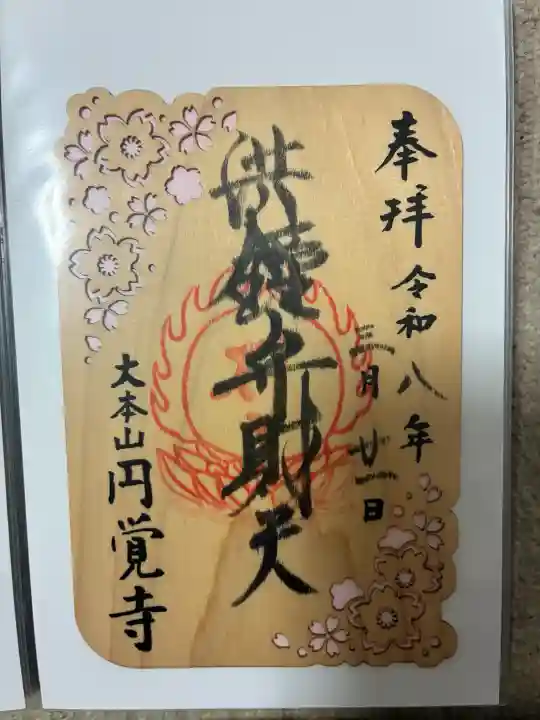 奉拝 令和八年
三月廿二日
洪鐘弁財天
大本山円覚寺